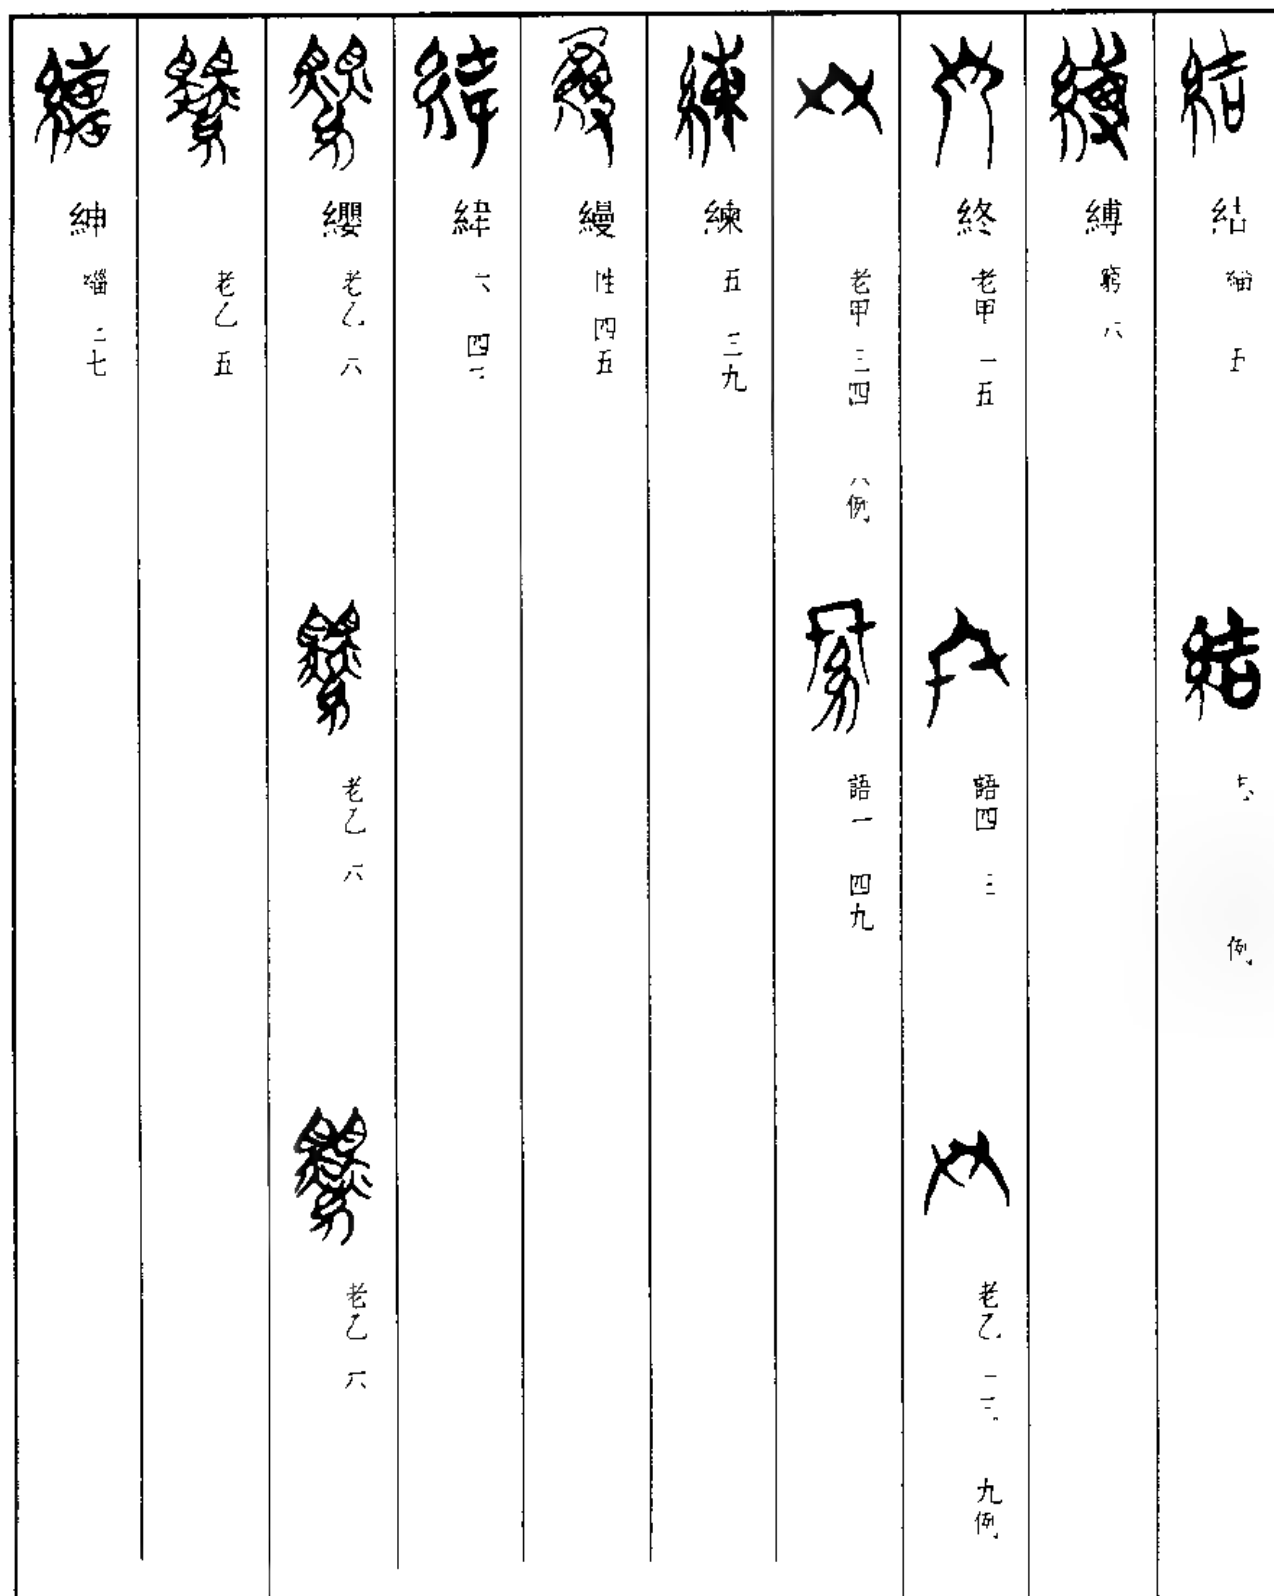 結
例
縛
窮 六
終
老甲 一五
語四 三
老乙
九例
老甲 三四 八例
語一 四九
練
五 三九
縵
性 四五
緯
六 四三
纓
老乙 六
老乙 六
老乙 六
老乙 五
紳
緇 二七